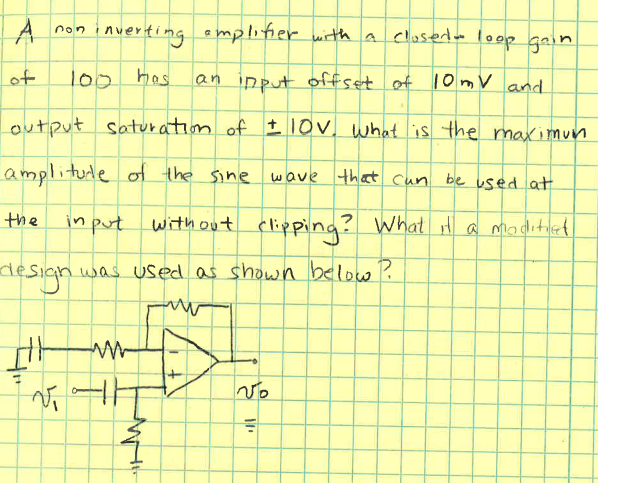 A non inverting amplifier with a closed-loop gain
of 100 has an input offset of 10mV and
output saturation of ± 10V. What is the maximum
amplitude of the sine wave that can be used at
the input without clipping? What if a modified
design was used as shown below?
-
+
Vi
Vo